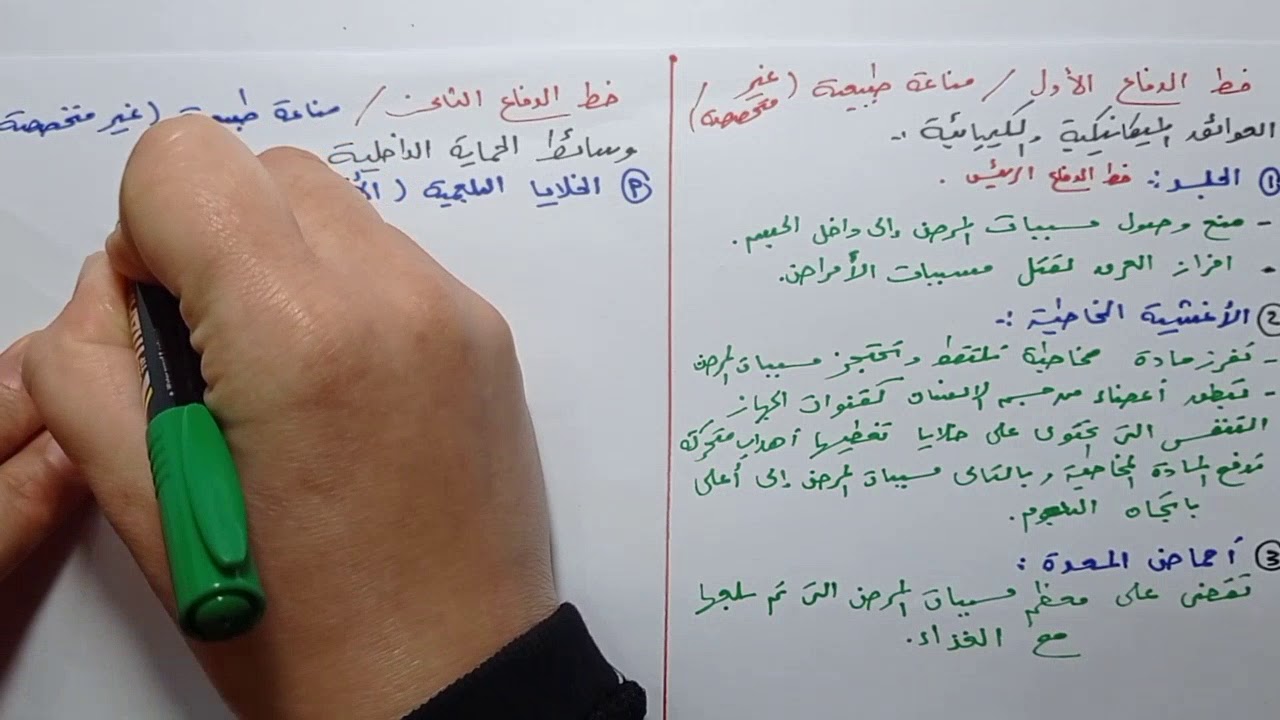 خط الدفاع الأول / مناعة طبيعية (غير متخصصة)
العوائق الميكانيكية والكيميائية :-
① الجلد :- خط الدفاع الرئيسي .
- منع وصول مسببات المرض إلى داخل الجسم .
- افراز العرق لقتل مسببات الأمراض .
② الأغشية المخاطية :-
- تفرز مادة مخاطية تلتقط وتحتجز مسببات المرض
- تبطن أعضاء من جسم الإنسان كقنوات الجهاز
التنفسي التي تحتوي على خلايا تغطيها أهداب متحركة
تدفع المادة المخاطية وبالتالي مسببات المرض إلى أعلى
باتجاه البلعوم .
③ أحماض المعدة :
تقضي على معظم مسببات المرض التي تم بلعها
مع الغذاء .
خط الدفاع الثاني / مناعة طبيعية (غير متخصصة
وسائط الحماية الداخلية
الخلايا البلعمية (